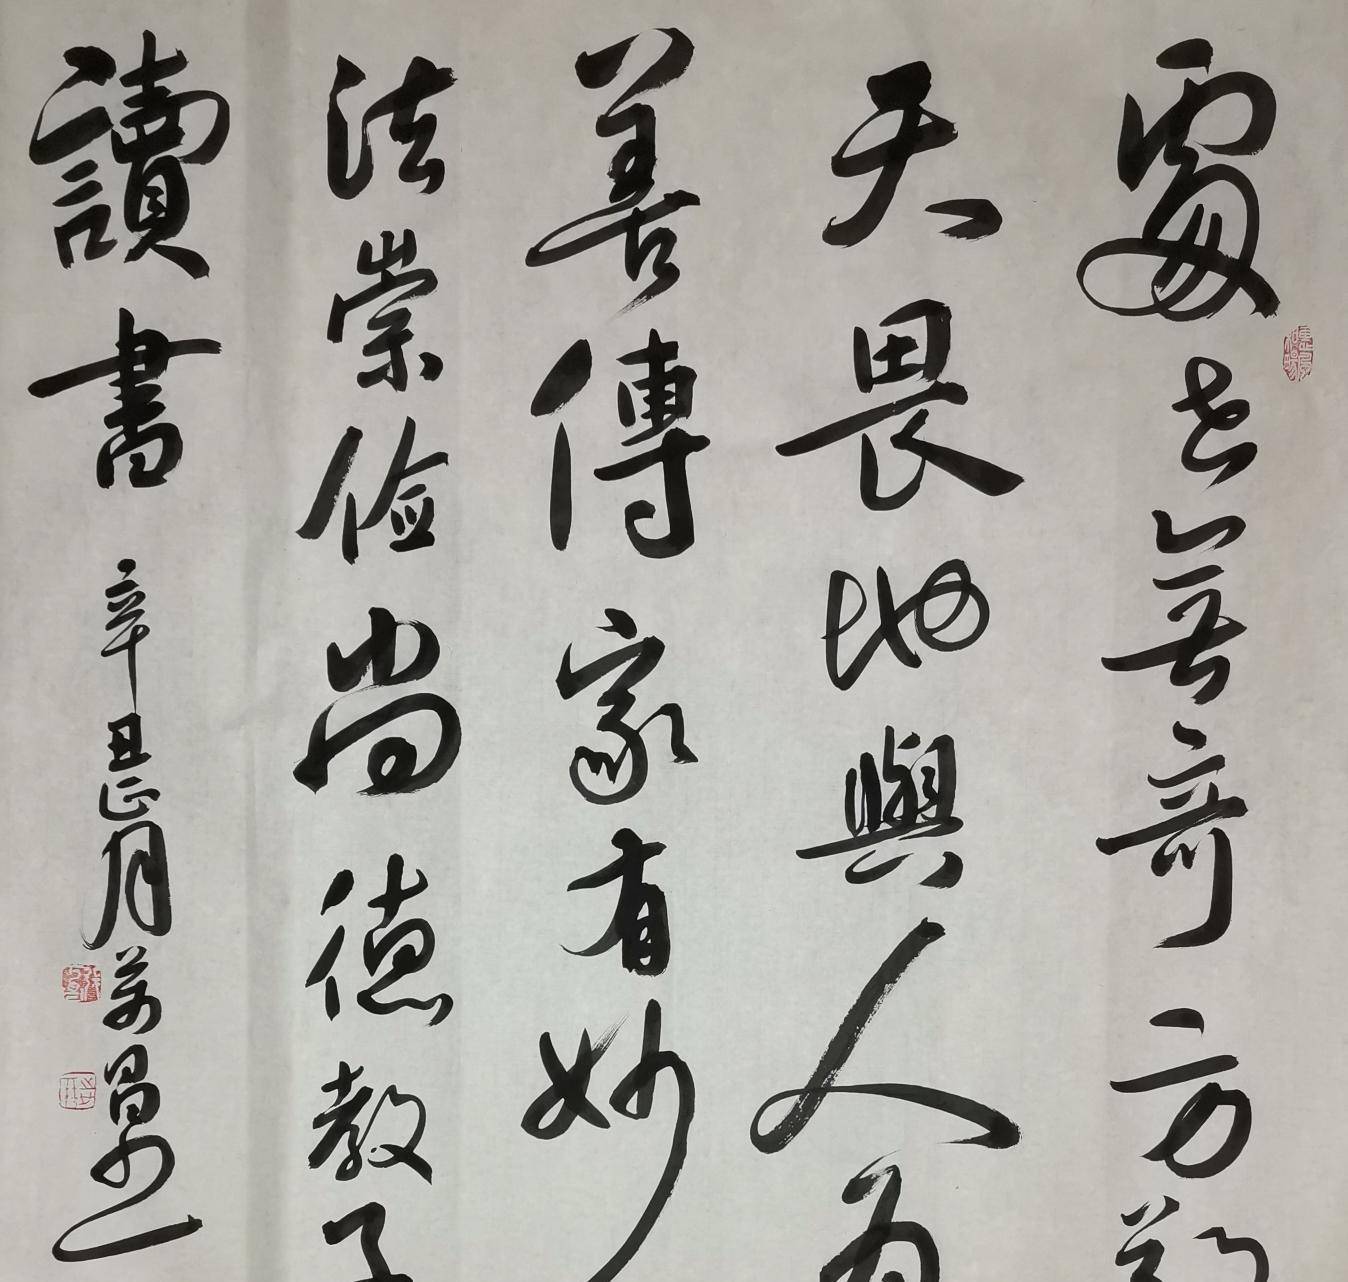 處世無奇方敬
天畏地與人為
善傳家有妙
法崇儉尚德教子
讀書
辛丑正月萬昌书